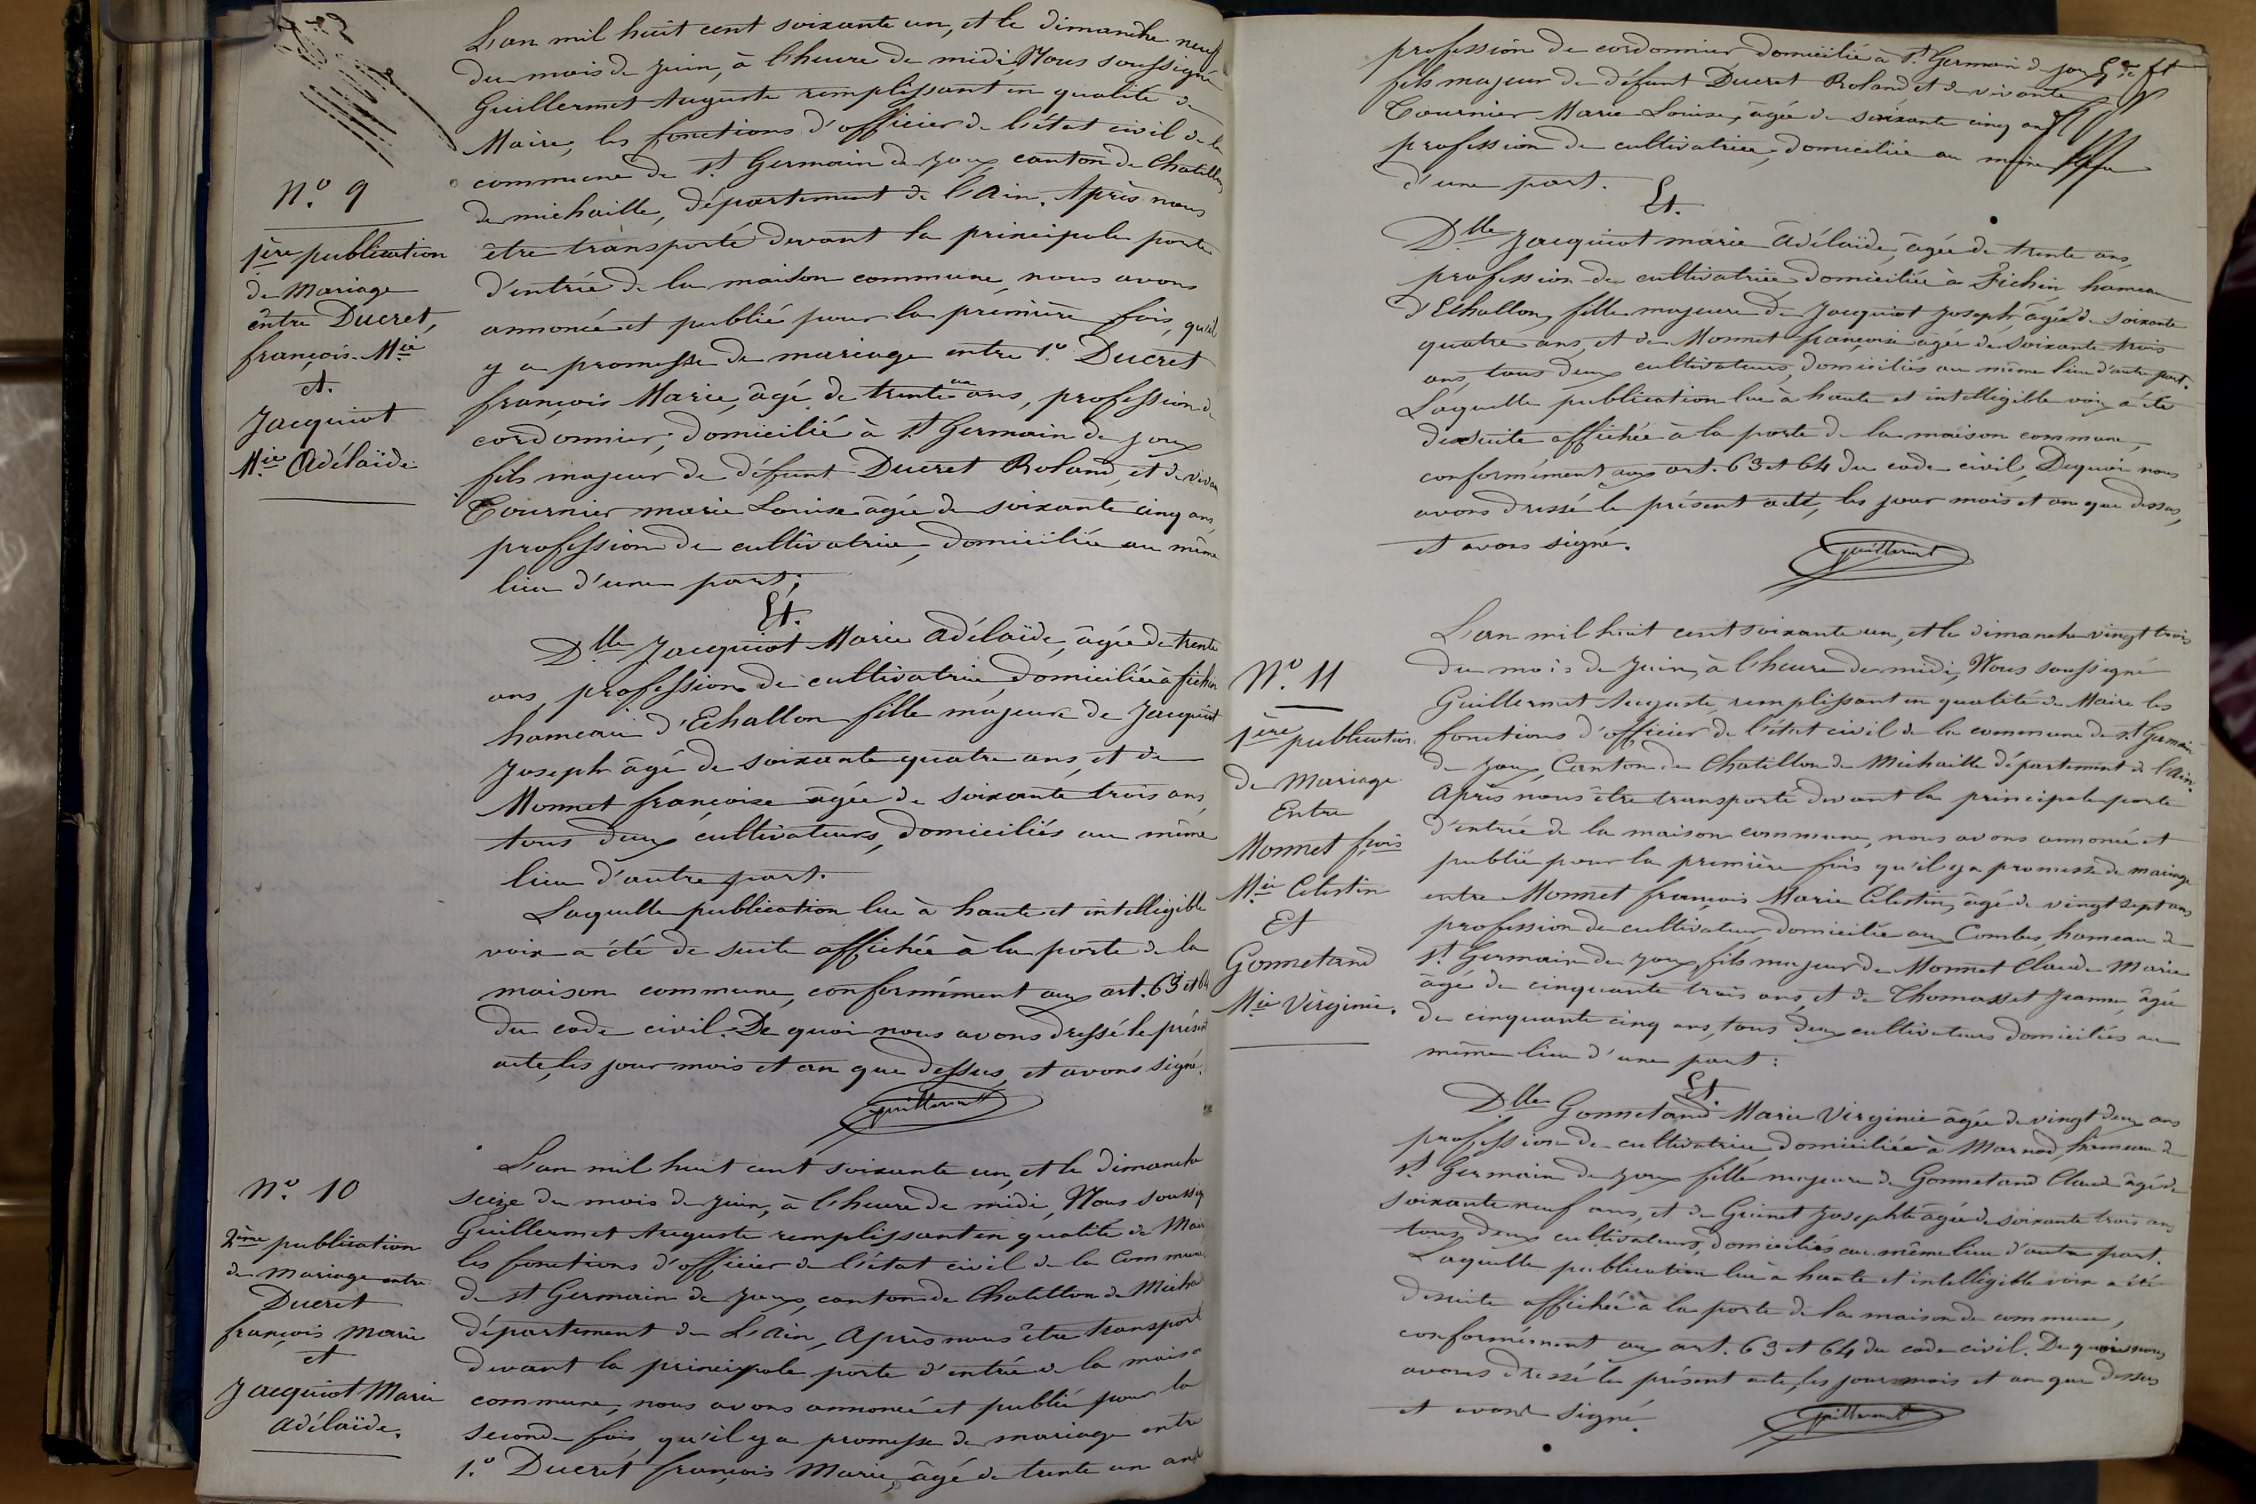 N.º 9
1ère publication
de Mariage
entre Ducret,
françois-Mie
et.
Jacquiot
Mie Adélaïde
L'an mil huit cent soixante un, et le dimanche neuf
du mois de Juin, à l'heure de midi, Nous soussigné
Guillermet Auguste remplissant en qualité de
Maire, les fonctions d'officier de l'état civil de la
commune de St Germain de Joux canton de Chatillon
de michaille, département de l'Ain. Après nous
être transporté devant la principale porte
d'entrée de la maison commune, nous avons
annoncé et publié pour la première fois, qu'il
y a promesse de mariage entre 1.º Ducret
françois Marie, âgé de trente un ans, profession de
cordonnier, domicilié à St Germain de Joux
fils majeur de défunt Ducret Roland, et de vivante
Tournier marie Louise âgée de soixante cinq ans,
profession de cultivatrice, domiciliée au même
lieu d'une part;
Et.
Dlle Jacquiot Marie Adélaïde, âgée de trente
ans, profession de cultivatrice, domiciliée à fichin
hameau d'Echallon fille majeure de Jacquiot
Joseph âgé de soixante quatre ans, et de
Monnet françoise âgée de soixante trois ans,
tous deux cultivateurs, domiciliés au même
lieu d'autre part.
Laquelle publication lue à haute et intelligible
voix a été de suite affichée à la porte de la
maison commune, conformément aux art. 63 et 64
du code civil. De quoi nous avons dressé le présent
acte, les jour mois et an que dessus, et avons signé.
Guillermet
N.º 10
2ème publication
de Mariage entre
Ducret
françois Marie
et
Jacquiot Marie
Adélaïde.
L'an mil huit cent soixante un, et le dimanche
seize du mois de Juin, à l'heure de midi, Nous soussig
Guillermet Auguste remplissant en qualité de Mair
les fonctions d'officier de l'état civil de la Commune
de St Germain de Joux, canton de Chatillon de Micha
département de L'Ain, Après nous être transport
devant la principale porte d'entrée de la maiso
commune, nous avons annoncé et publié pour la
seconde fois, qu'il y a promesse de mariage entre
1.º Ducret françois Marie, âgé de trente un ans
profession de cordonnier domicilié à St Germain de Joux
fils majeur de défunt Ducret Roland, et de vivante
Tournier Marie Louise, âgée de soixante cinq ans
profession de cultivatrice, domiciliée au même
d'une part.
Et.
Dlle Jacquiot marie Adélaïde, âgée de trente ans,
profession de cultivatrice domiciliée à Fichin, hameau
d'Echallon, fille majeure de Jacquiot Joseph âgé de soixante
quatre ans, et de Monnet françoise âgée de soixante trois
ans, tous deux cultivateurs, domiciliés au même lieu d'autre part.
Laquelle publication lue à haute et intelligible voix a été
de suite affichée à la porte de la maison commune,
conformément aux art. 63 et 64 du code civil, De quoi nous
avons dressé le présent acte, les jour mois et an que dessus,
et avons signé.
Guillermet
N.º 11
1ère publication
de Mariage
Entre
Monnet fçois
Mie Célestin
Et
Gonnetand
Mie Virginie.
L'an mil huit cent soixante un, et le dimanche vingt trois
du mois de Juin, à l'heure de midi, Nous soussigné
Guillermet Auguste, remplissant en qualité de Maire les
fonctions d'officier de l'état civil de la commune de St Germain
de Joux, Canton de Chatillon de Michaille département de l'Ain.
Après nous être transporté devant la principale porte
d'entrée de la maison commune, nous avons annoncé et
publié pour la première fois qu'il y a promesse de mariage
entre Monnet françois Marie Célestin, âgé de vingt sept ans
profession de cultivateur, domicilié aux Combes, hameau de
St Germain de Joux, fils majeur de Monnet Claude Marie
âgé de cinquante trois ans, et de Thomasset Jeanne, âgée
de cinquante cinq ans, tous deux cultivateurs domiciliés au
même lieu d'une part:
Et.
Dlle Gonnetand Marie Virginie âgée de vingt deux ans
profession de cultivatrice domiciliée à Marnod, hameau de
St Germain de Joux fille majeure de Gonnetand Claude âgé de
soixante neuf ans, et de Guinet Josephte âgée de soixante trois ans
tous deux cultivateurs, domiciliés au même lieu d'autre part.
Laquelle publication lue à haute et intelligible voix a été
de suite affichée à la porte de la maison de commune,
conformément aux art. 63 et 64 du code civil. De quoi nous
avons dressé le présent acte, les jour mois et an que dessus
et avons signé.
Guillermet